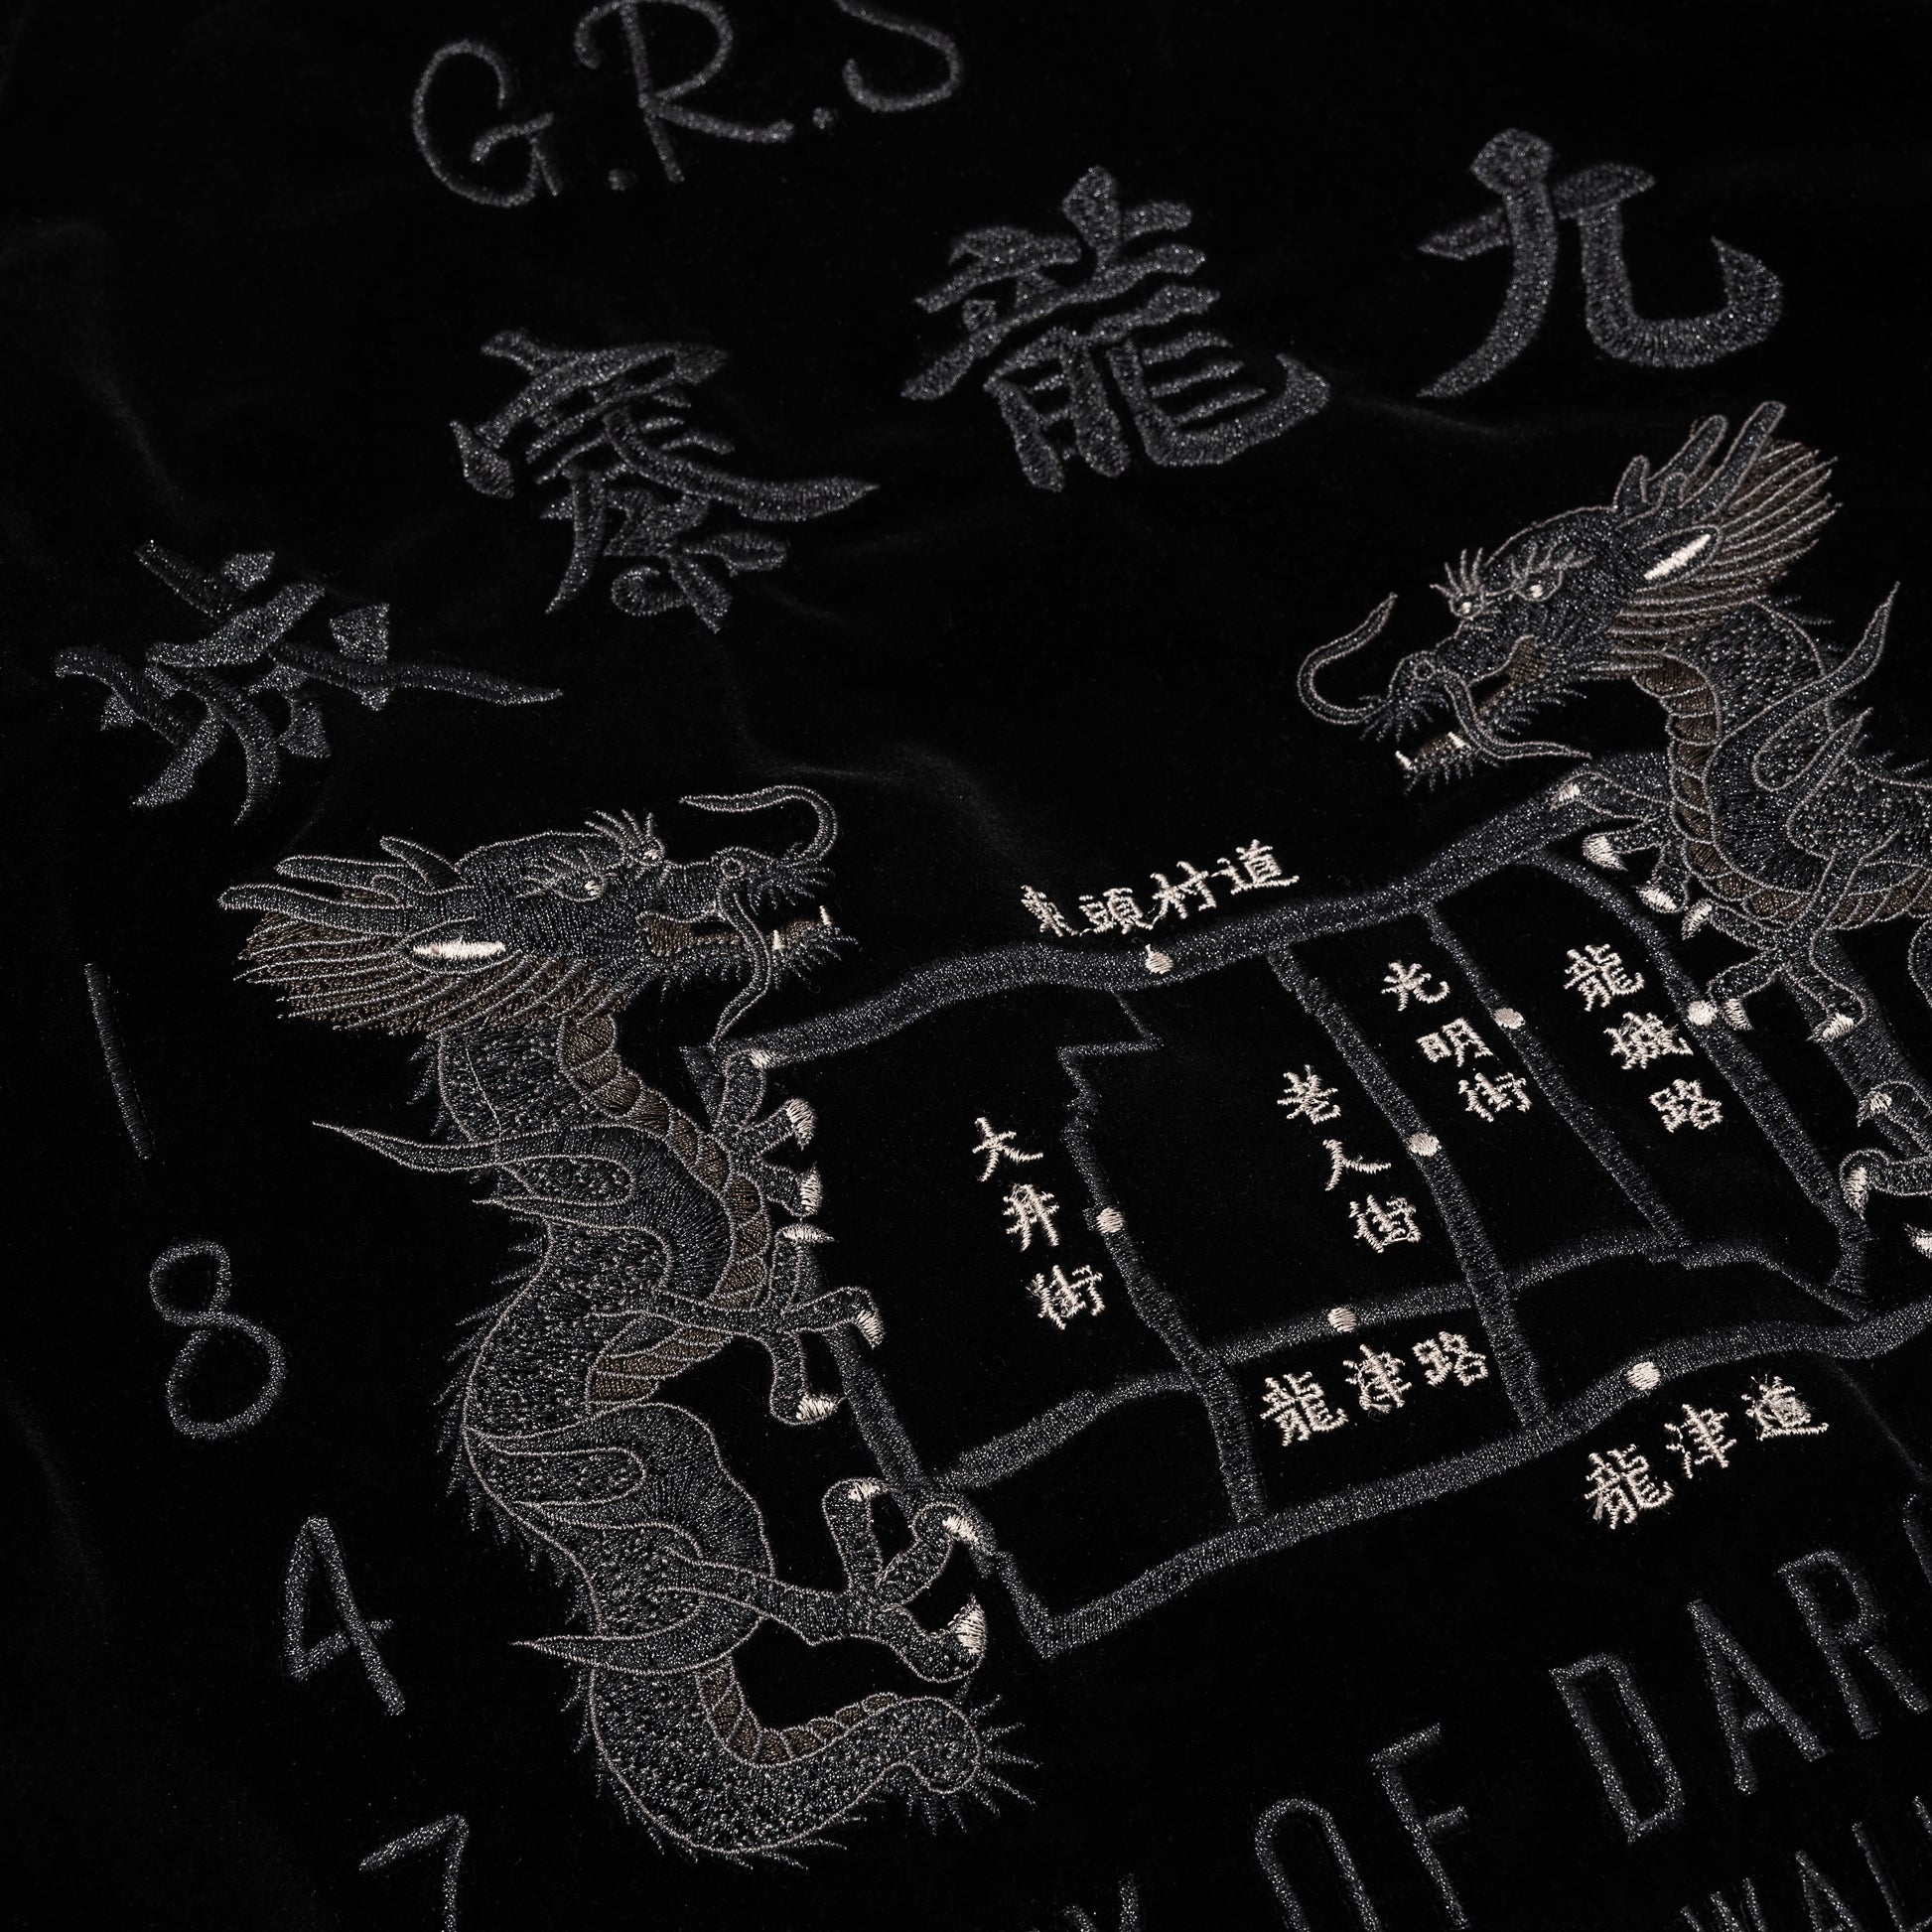 G.R.
九龍寨城
東頭村道
大井街
老人街
光明街
龍城路
龍津路
龍津道
1847
OF DAR
WAL